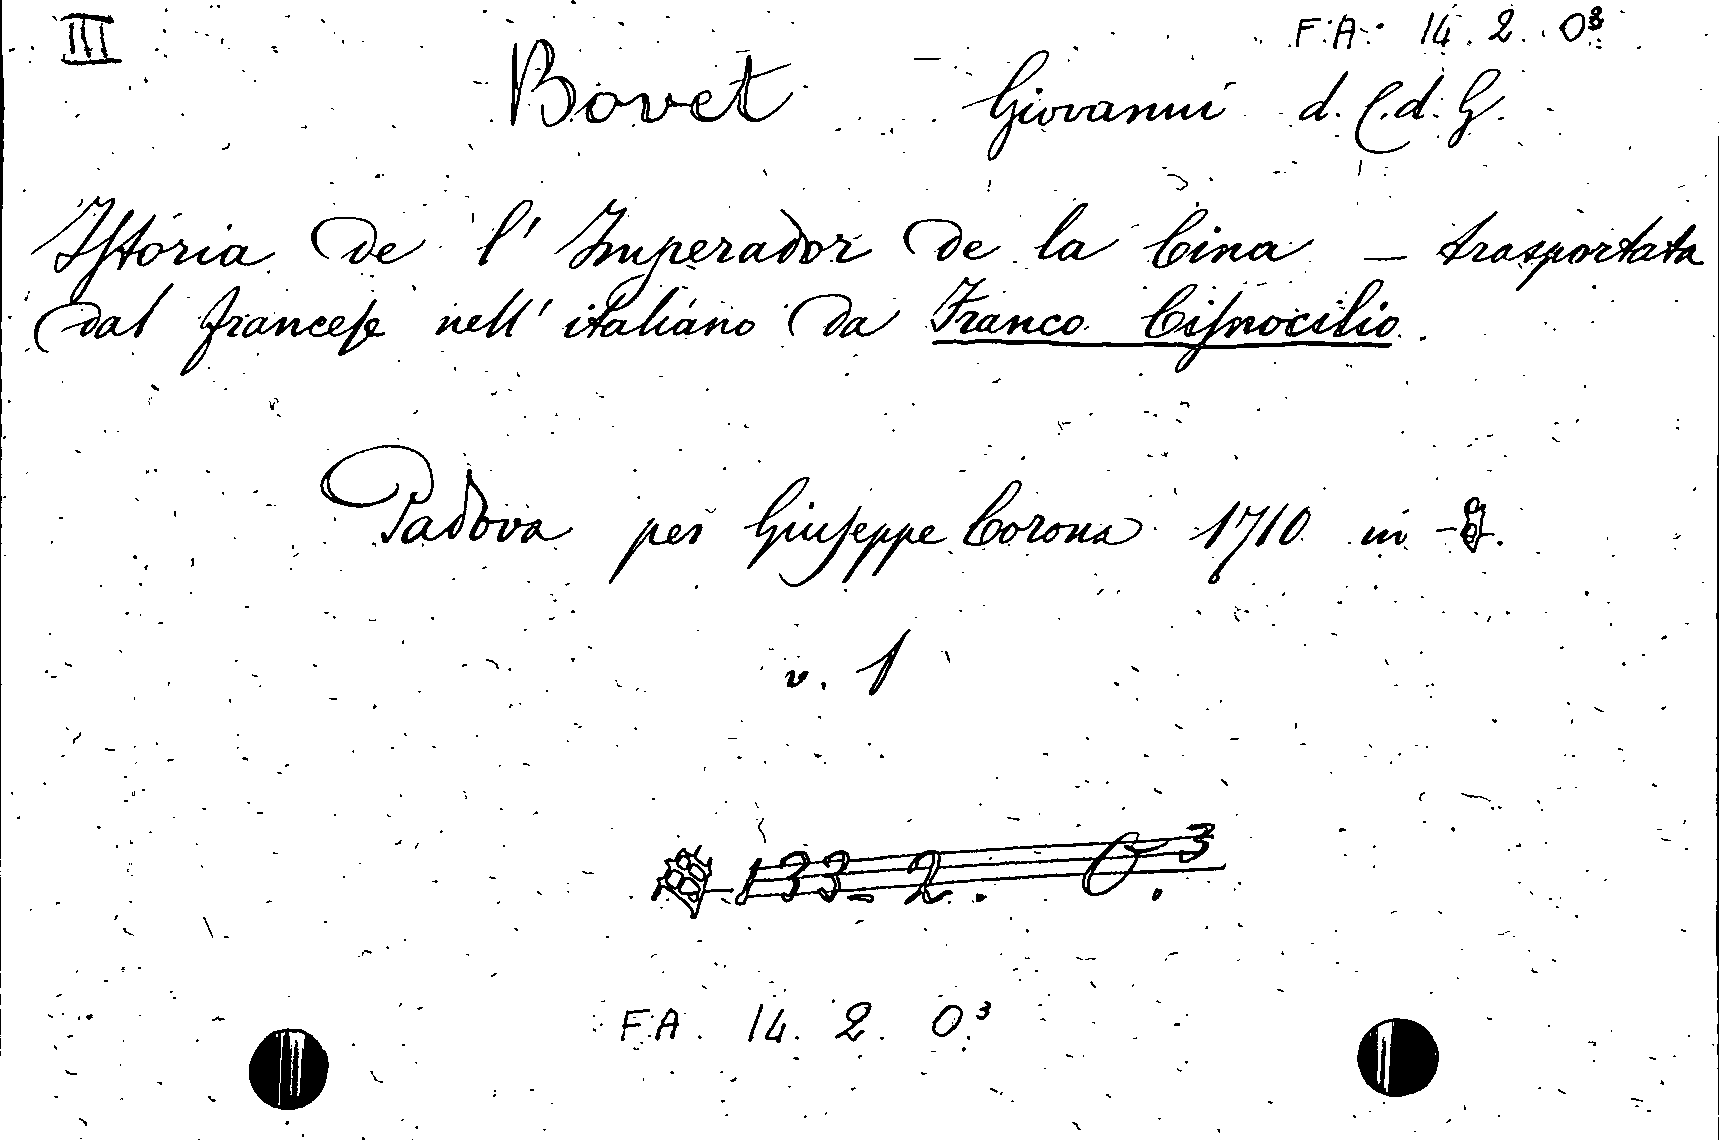 III F.A. 14. 2. O³
Bovet Giovanni d. C. d. G.
Istoria de l' Imperador de la Cina — trasportata
dal francese nell' italiano da Franco Cisnocilio.
Padova per Giuseppe Corona 1710 in - 8.
v. 1
133. 2. O.³
F.A. 14. 2. O.³